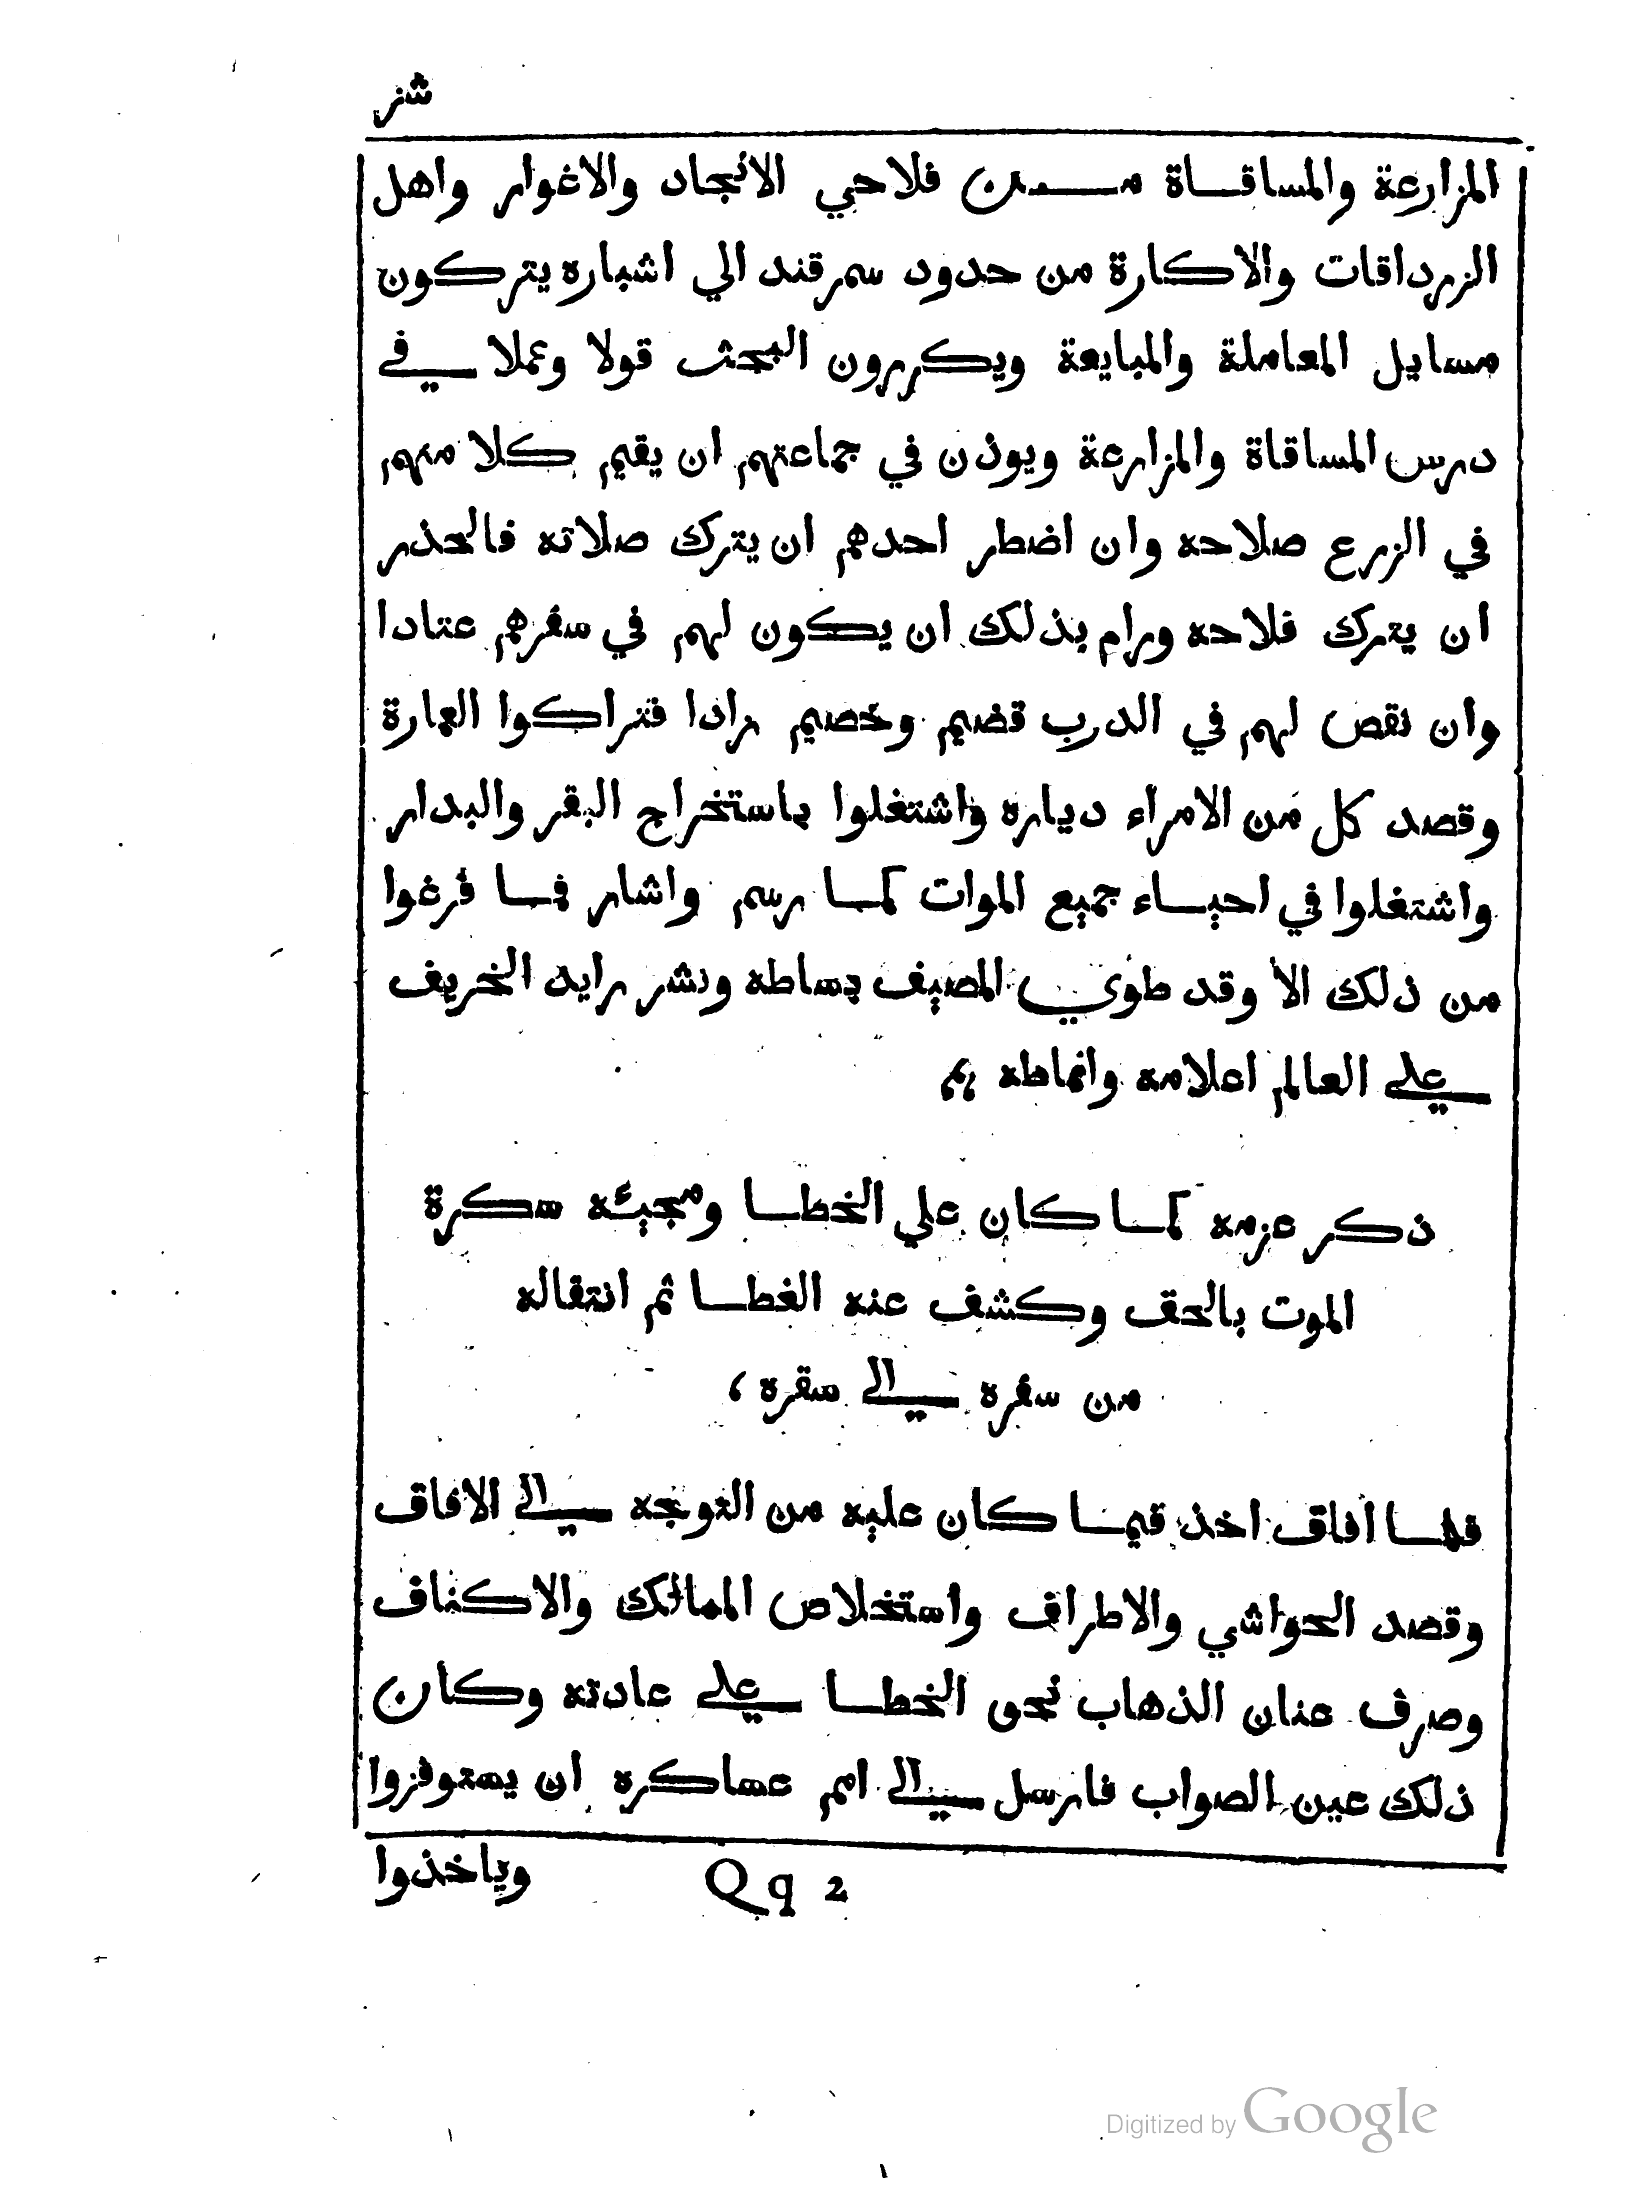 شنر
المزارعة والمساقاة ممن فلاحي الانجاد والاغوار واهل
الزرداقات والاكارة من حدود سمرقند الي اشباره يتركون
مسايل المعاملة والمبايعة ويكررون البحث قولا وعملا في
درس المساقاة والمزارعة ويوذن في جماعتهم ان يقيم كلا منهم
في الزرع صلاحه وان اضطر احدهم ان يترك صلاته فالحذر
ان يترك فلاحه ورام بذلك ان يكون لهم في سفرهم عتادا
وان نقص لهم في الدرب قضيم وخضيم زادا فتراكوا العمارة
وقصد كل من الامراء دياره واشتغلوا باستخراج البقر والبدار
واشتغلوا في احياء جميع الموات كما رسم واشار فما فرغوا
من ذلك الا وقد طوي المصيف بساطه ونشر رايد الخريف
علي العالم اعلامه وانماطه
ذكر عزمه كما كان علي الخطا ومجيئه سكرة
الموت بالحق وكشف عنه الغطا ثم انتقاله
من سفره الي سقره ،
فلما افاق اخذ فيما كان عليه من التوجه الي الافاق
وقصد الحواشي والاطراف واستخلاص الممالك والاكناف
وصرف عنان الذهاب نحو الخطا علي عادته وكان
ذلك عين الصواب فارسل الي امم عساكره ان يستوفزوا
وياخذوا
Qq 2
Digitized by Google